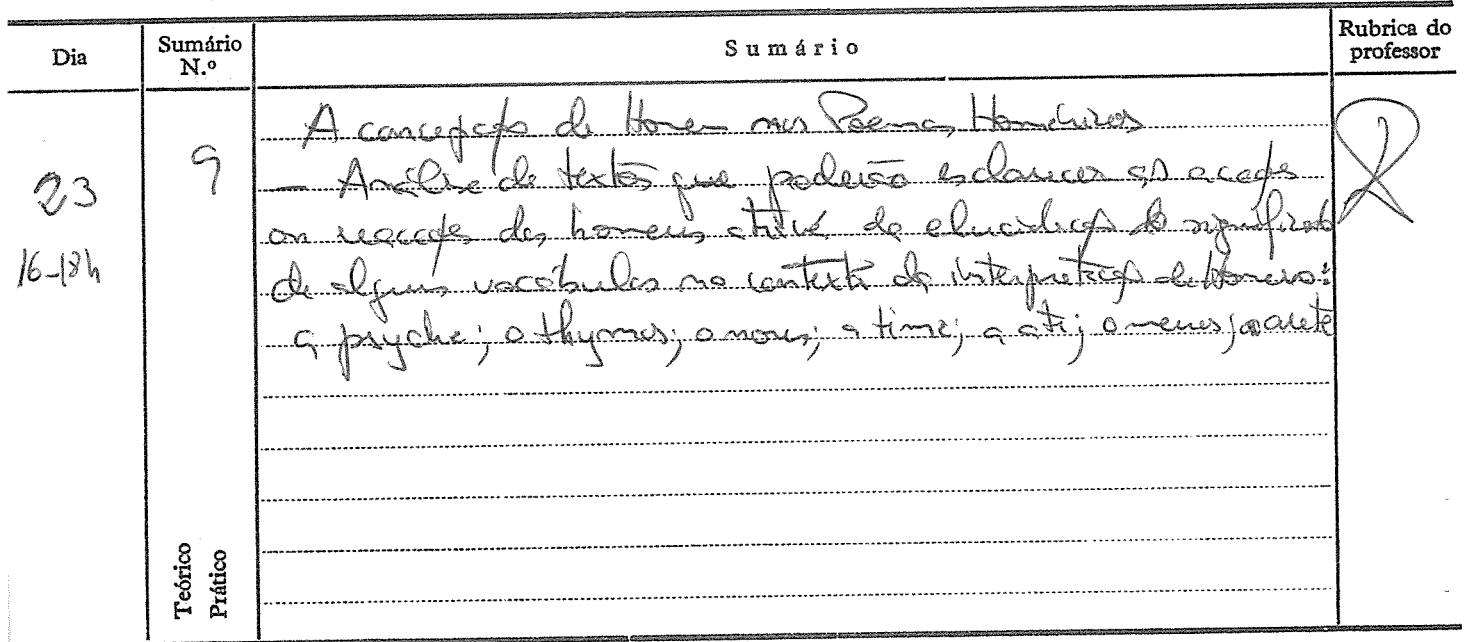 Dia
Sumário N.º
Sumário
Rubrica do professor
23
16-18h
9
A concepção de Homem nos Poemas Homéricos
— Análise de textos que poderão esclarecer as acções
ou reacções dos homens através da elucidação do significado
de alguns vocábulos no contexto da interpretação de Homero:
a psyche; o thymos; o nous; a time; a ate; o menos; a arete
Teórico
Prático